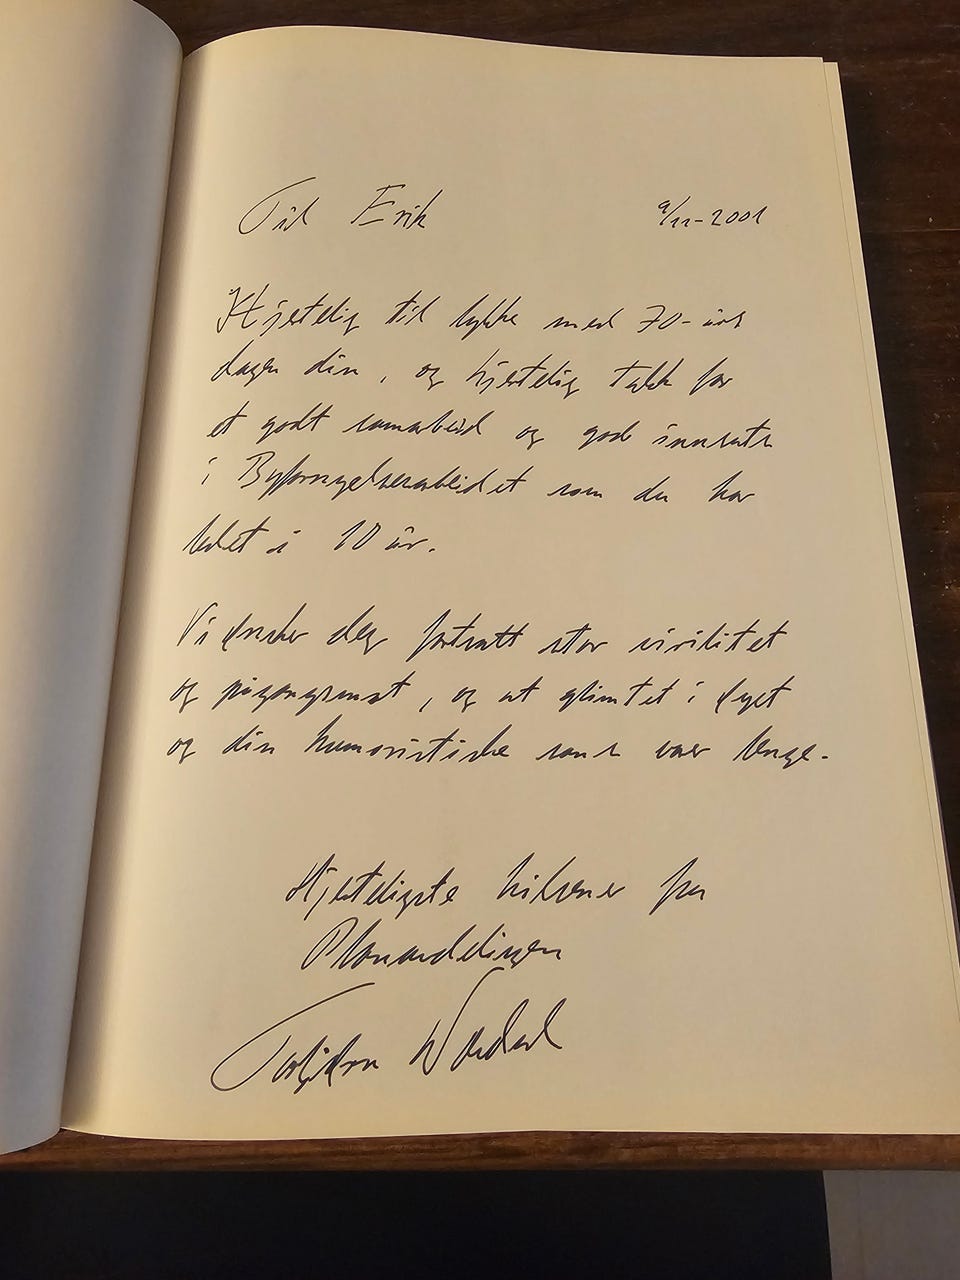 Til Erik 9/11-2001
Hjertelig til lykke med 70-års
dagen din, og hjertelig takk for
et godt samarbeid og god innsats
i Byfornyelsesarbeidet som du har
ledet i 10 år.
Vi ønsker deg fortsatt stor virilitet
og pågangsmot, og at glimtet i øyet
og din humoristiske sans varer lenge.
Hjerteligste hilsener fra
Planavdelingen